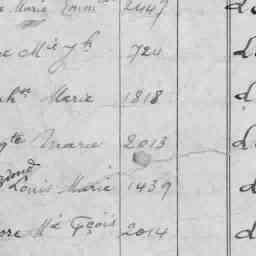 Marie Emm 2447 d
e Mie Jh 724 d
ph.ne Marie 1818 d
gte Marie 2013 d
Louis Marie 1439 d
ore Me Fçois 2014 d